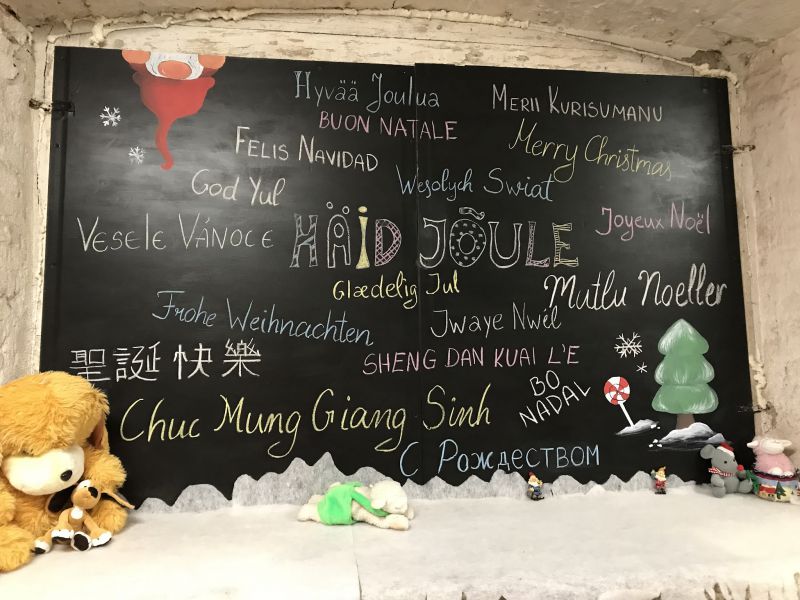 Hyvää Joulua
Merii Kurisumanu
BUON NATALE
Merry Christmas
Felis Navidad
God Yul
Wesolych Swiat
Vesele Vánoce
HÄID JÕULE
Joyeux Noël
Glædelig Jul
Mutlu Noeller
Frohe Weihnachten
Jwaye Nwél
聖誕快樂
SHENG DAN KUAI L'E
BO
NADAL
Chuc Mung Giang Sinh
С Рождеством